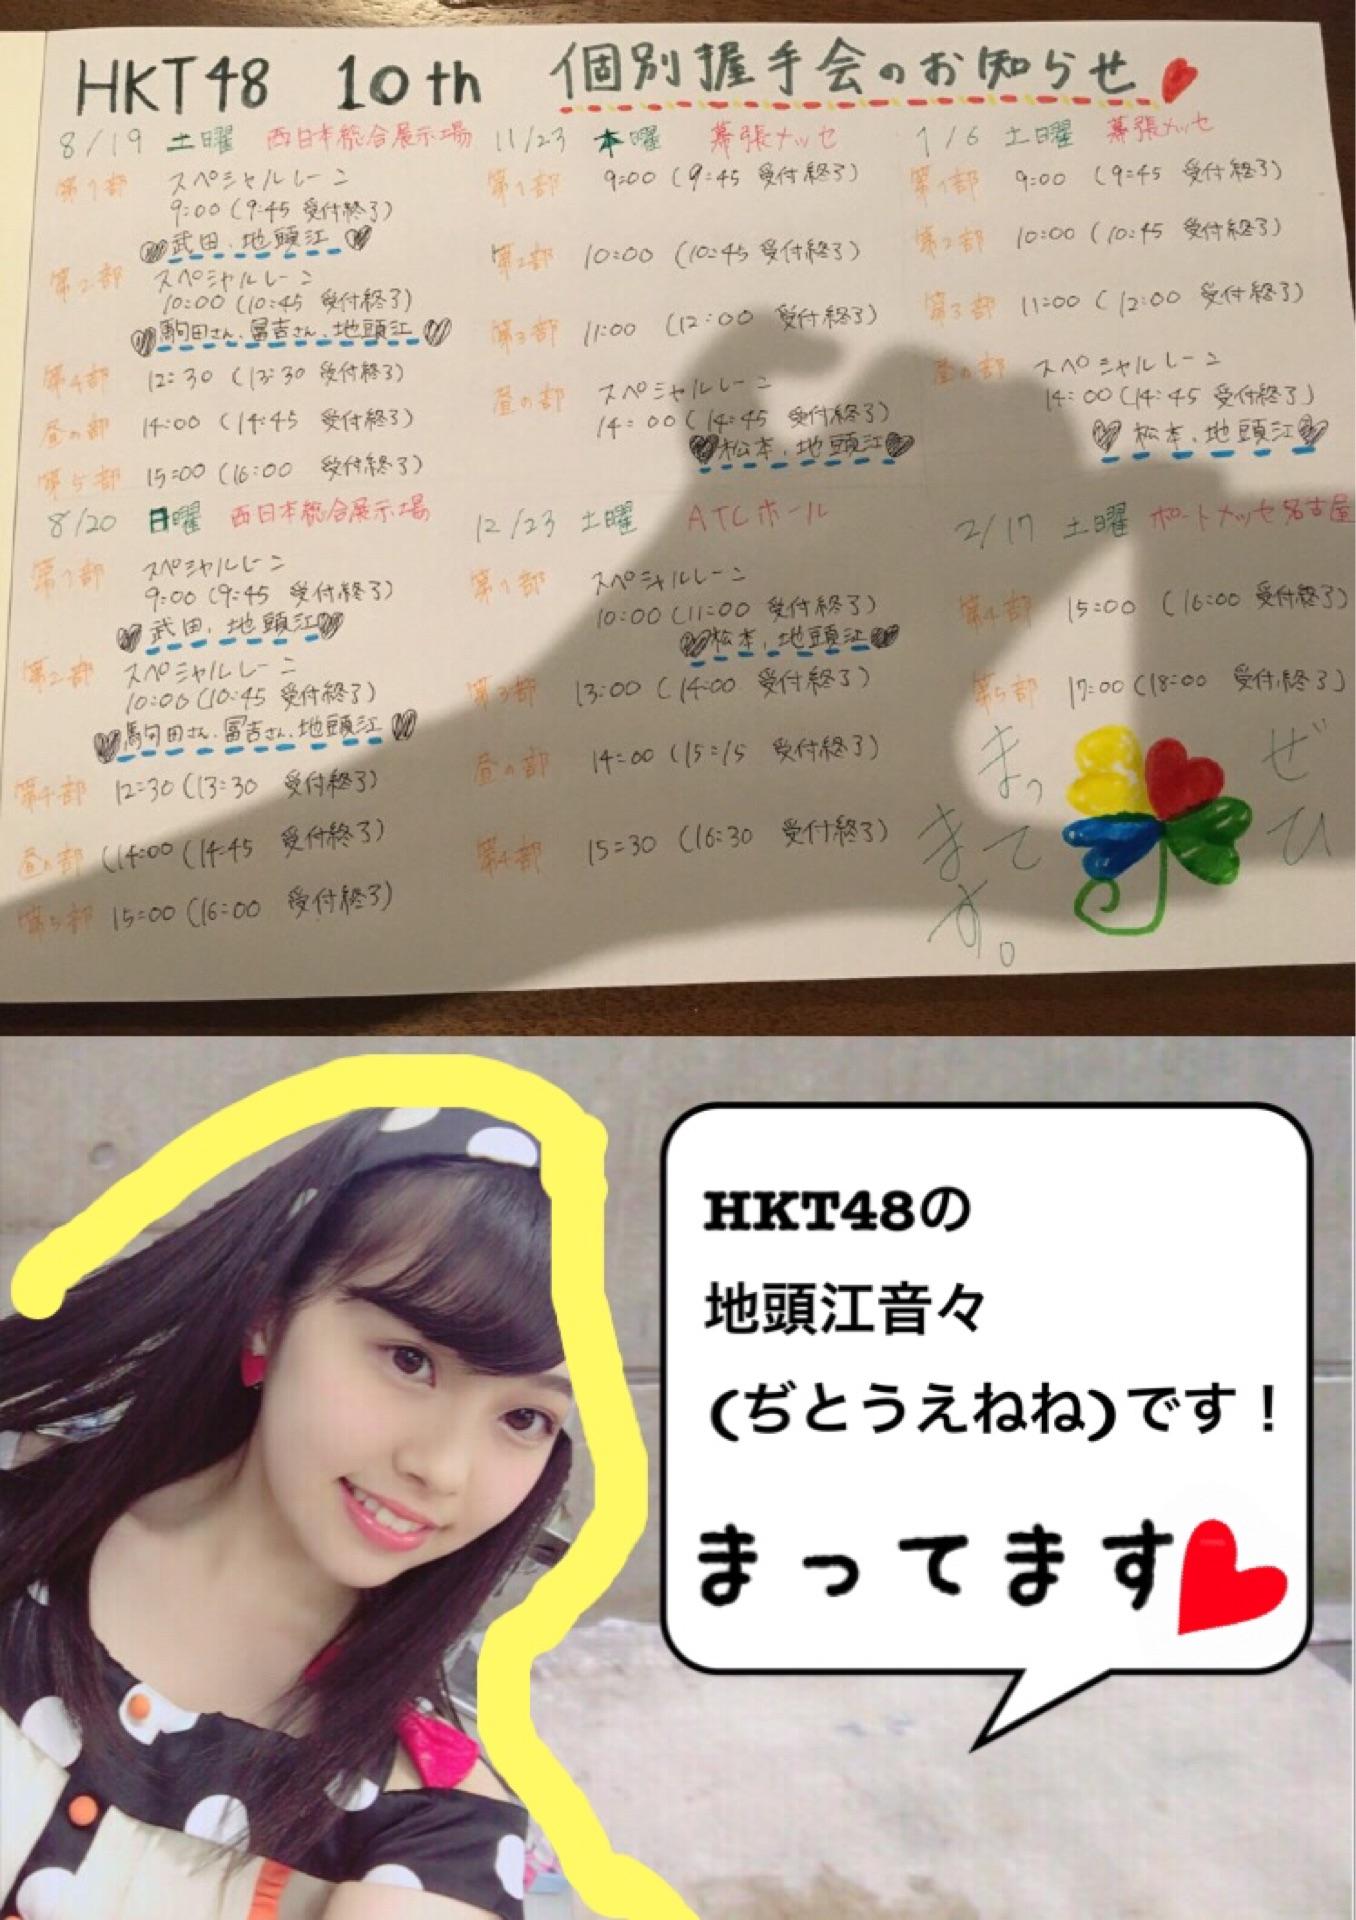 HKT48 10th 個別握手会のお知らせ
8/19 土曜 西日本総合展示場
第1部 スペシャルレーン
9:00 (9:45 受付終了)
武田、地頭江
第2部 スペシャルレーン
10:00 (10:45 受付終了)
駒田さん、冨吉さん、地頭江
第4部 12:30 (13:30 受付終了)
昼の部 14:00 (14:45 受付終了)
第5部 15:00 (16:00 受付終了)
8/20 日曜 西日本総合展示場
第1部 スペシャルレーン
9:00 (9:45 受付終了)
武田、地頭江
第2部 スペシャルレーン
10:00 (10:45 受付終了)
駒田さん、冨吉さん、地頭江
第4部 12:30 (13:30 受付終了)
昼の部 (14:00 (14:45 受付終了)
第5部 15:00 (16:00 受付終了)
11/23 木曜 幕張メッセ
第1部 9:00 (9:45 受付終了)
第2部 10:00 (10:45 受付終了)
第3部 11:00 (12:00 受付終了)
昼の部 スペシャルレーン
14:00 (14:45 受付終了)
松本、地頭江
12/23 土曜 ATCホール
第1部 スペシャルレーン
10:00 (11:00 受付終了)
松本、地頭江
第3部 13:00 (14:00 受付終了)
昼の部 14:00 (15:15 受付終了)
第4部 15:30 (16:30 受付終了)
1/6 土曜 幕張メッセ
第1部 9:00 (9:45 受付終了)
第2部 10:00 (10:45 受付終了)
第3部 11:00 (12:00 受付終了)
昼の部 スペシャルレーン
14:00 (14:45 受付終了)
松本、地頭江
2/17 土曜 ポートメッセ名古屋
第4部 15:00 (16:00 受付終了)
第5部 17:00 (18:00 受付終了)
ぜひ
まって
ます。
HKT48の
地頭江音々
(ぢとうえねね)です！
まってます